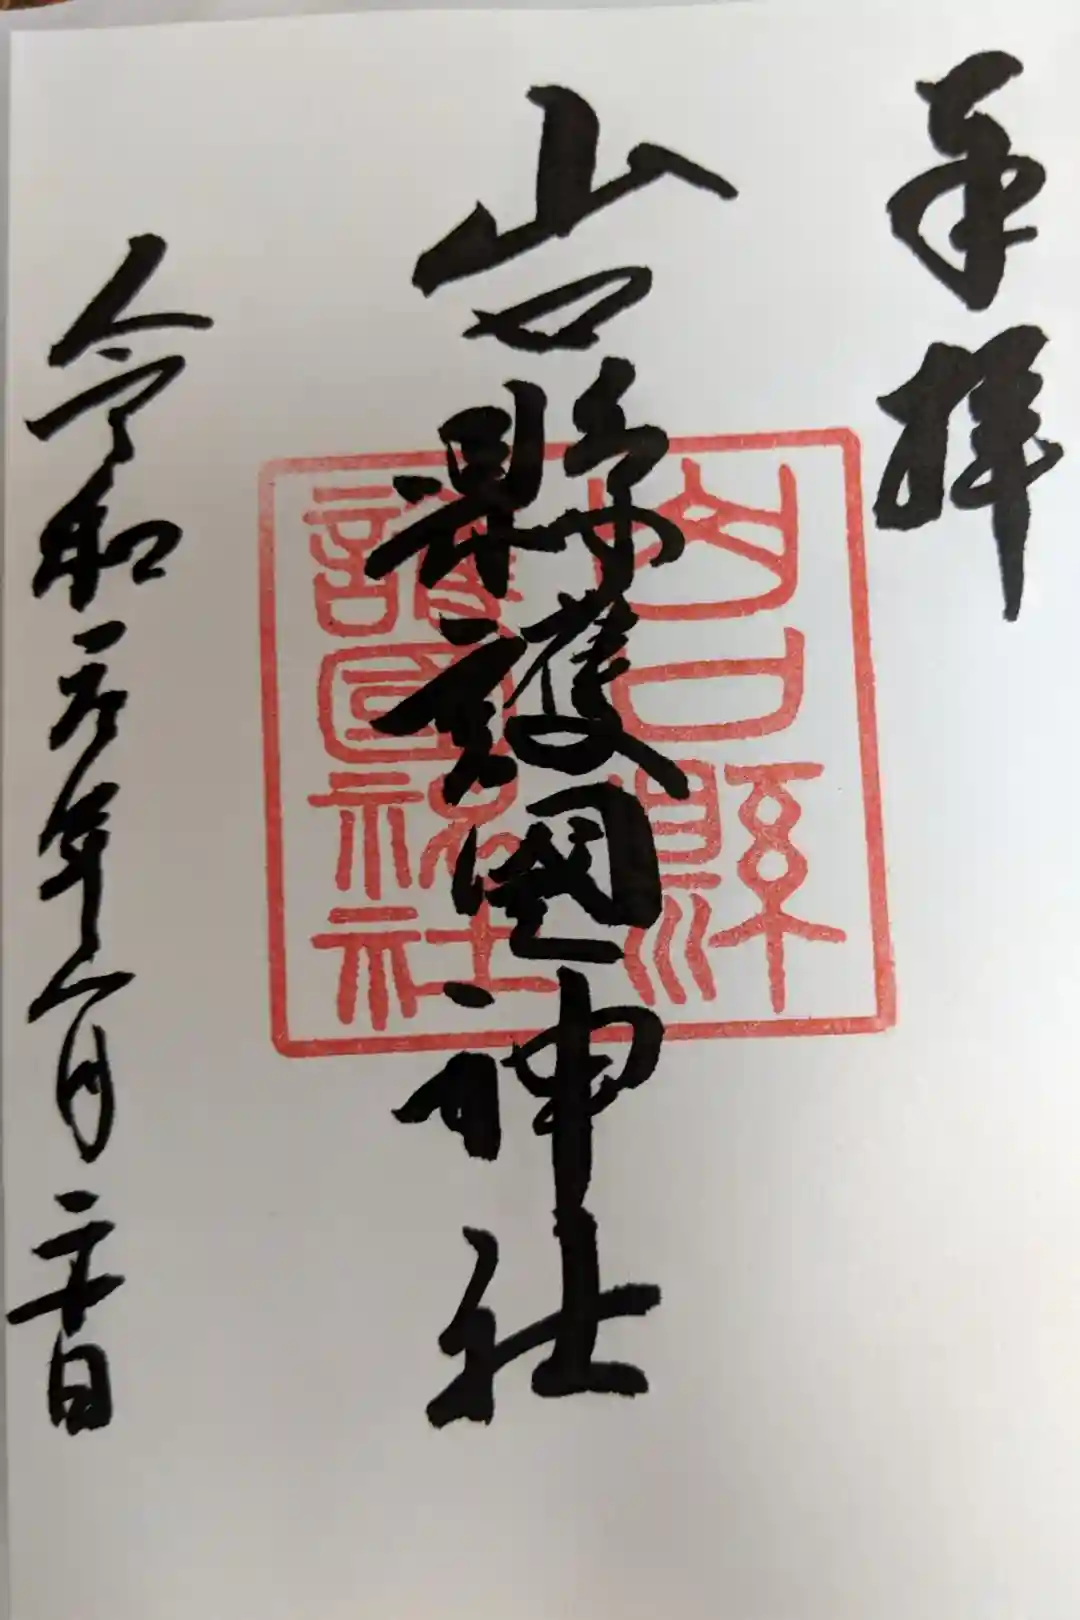 奉拝
山口縣護國神社
令和元年八月二十日
山口縣
護國神社